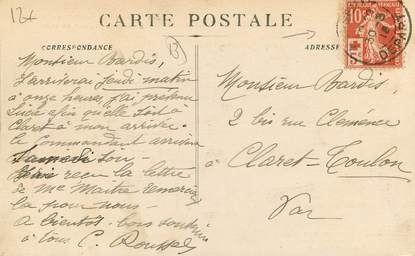 12f
CARTE POSTALE
CORRESPONDANCE
ADRESSE
10
Monsieur Bardis,
J'arriverai jeudi matin
à onze heures, j'ai prévenu
afin qu'elle soit
Claret à mon arrivée.
le Commandant arrivera
Samedi soir
reçu la lettre
de Me Maitre
pour nous
A bientôt. bons souvenirs
à tous C. Roussel
Monsieur Bardis
2 bis rue Clémence
à Claret-Toulon
Var